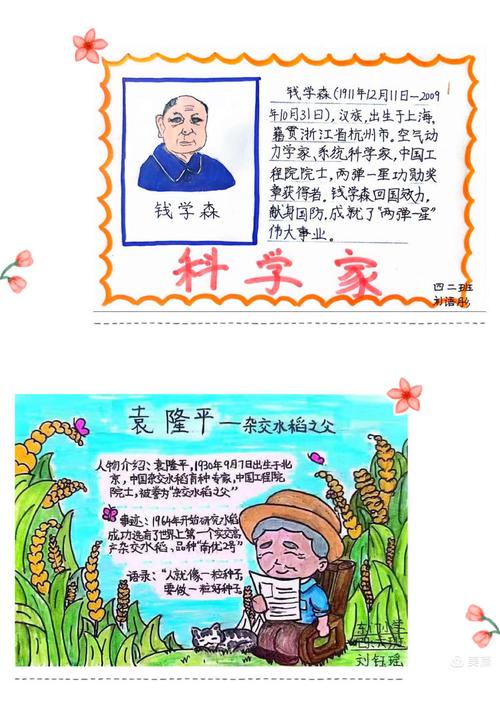 钱学森(1911年12月11日—2009
年10月31日),汉族,出生于上海,
籍贯浙江省杭州市。空气动
力学家、系统科学家,中国工
程院院士,两弹一星功勋奖
章获得者。钱学森回国效力,
献身国防,成就了“两弹一星”
伟大事业。
钱学森
科学家
四二班
袁隆平—杂交水稻之父
人物介绍:袁隆平,1930年9月7日出生于北
京,中国杂交水稻育种专家,中国工程院
院士,被誉为“杂交水稻之父”
事迹:1964年开始研究水稻
成功选育了世界上第一个实交高
产杂交水稻、品种“南优2号”
语录:“人就像一粒种子,
要做一粒好种子。
东门小学
刘钰瑶
美篇